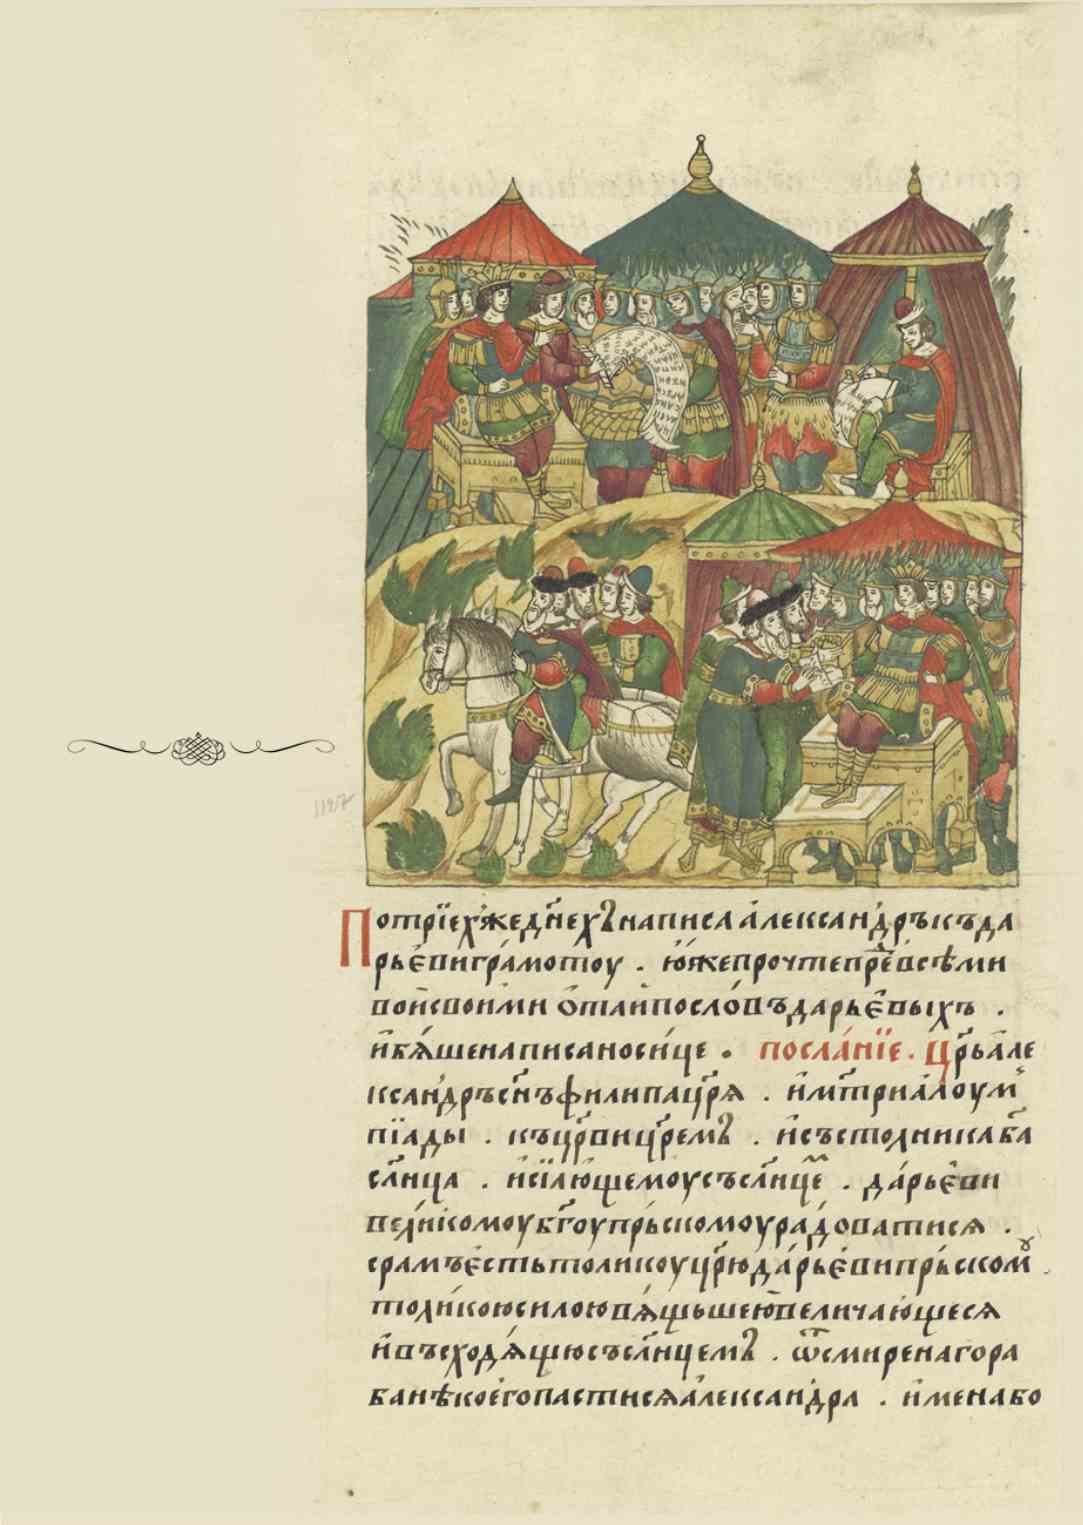 Потрїехже днехъ написа александръ къ да
рьеви грамотоу . юже прочте предъ всѣми
вои своими ѿтаи пословъ дарьевыхъ .
и бѧше написано сице . посланїе . Црь але
ксандръ снъ филипа црѧ . и мтри алоум
пїады . къ црви цремъ . и състолника ба
слнца . и сїающемоу съ слнцемъ . дарьеви
великомоу бгоу прьскомоу радоватисѧ .
срамъ есть толикоу црю дарьеви прьскомꙋ .
толикою силою вѧщьшею величающесѧ
и въсходѧщю съ слнцемъ . ѿ смирена гора
ба нѣкоего пастисѧ александра . имена бо
1127